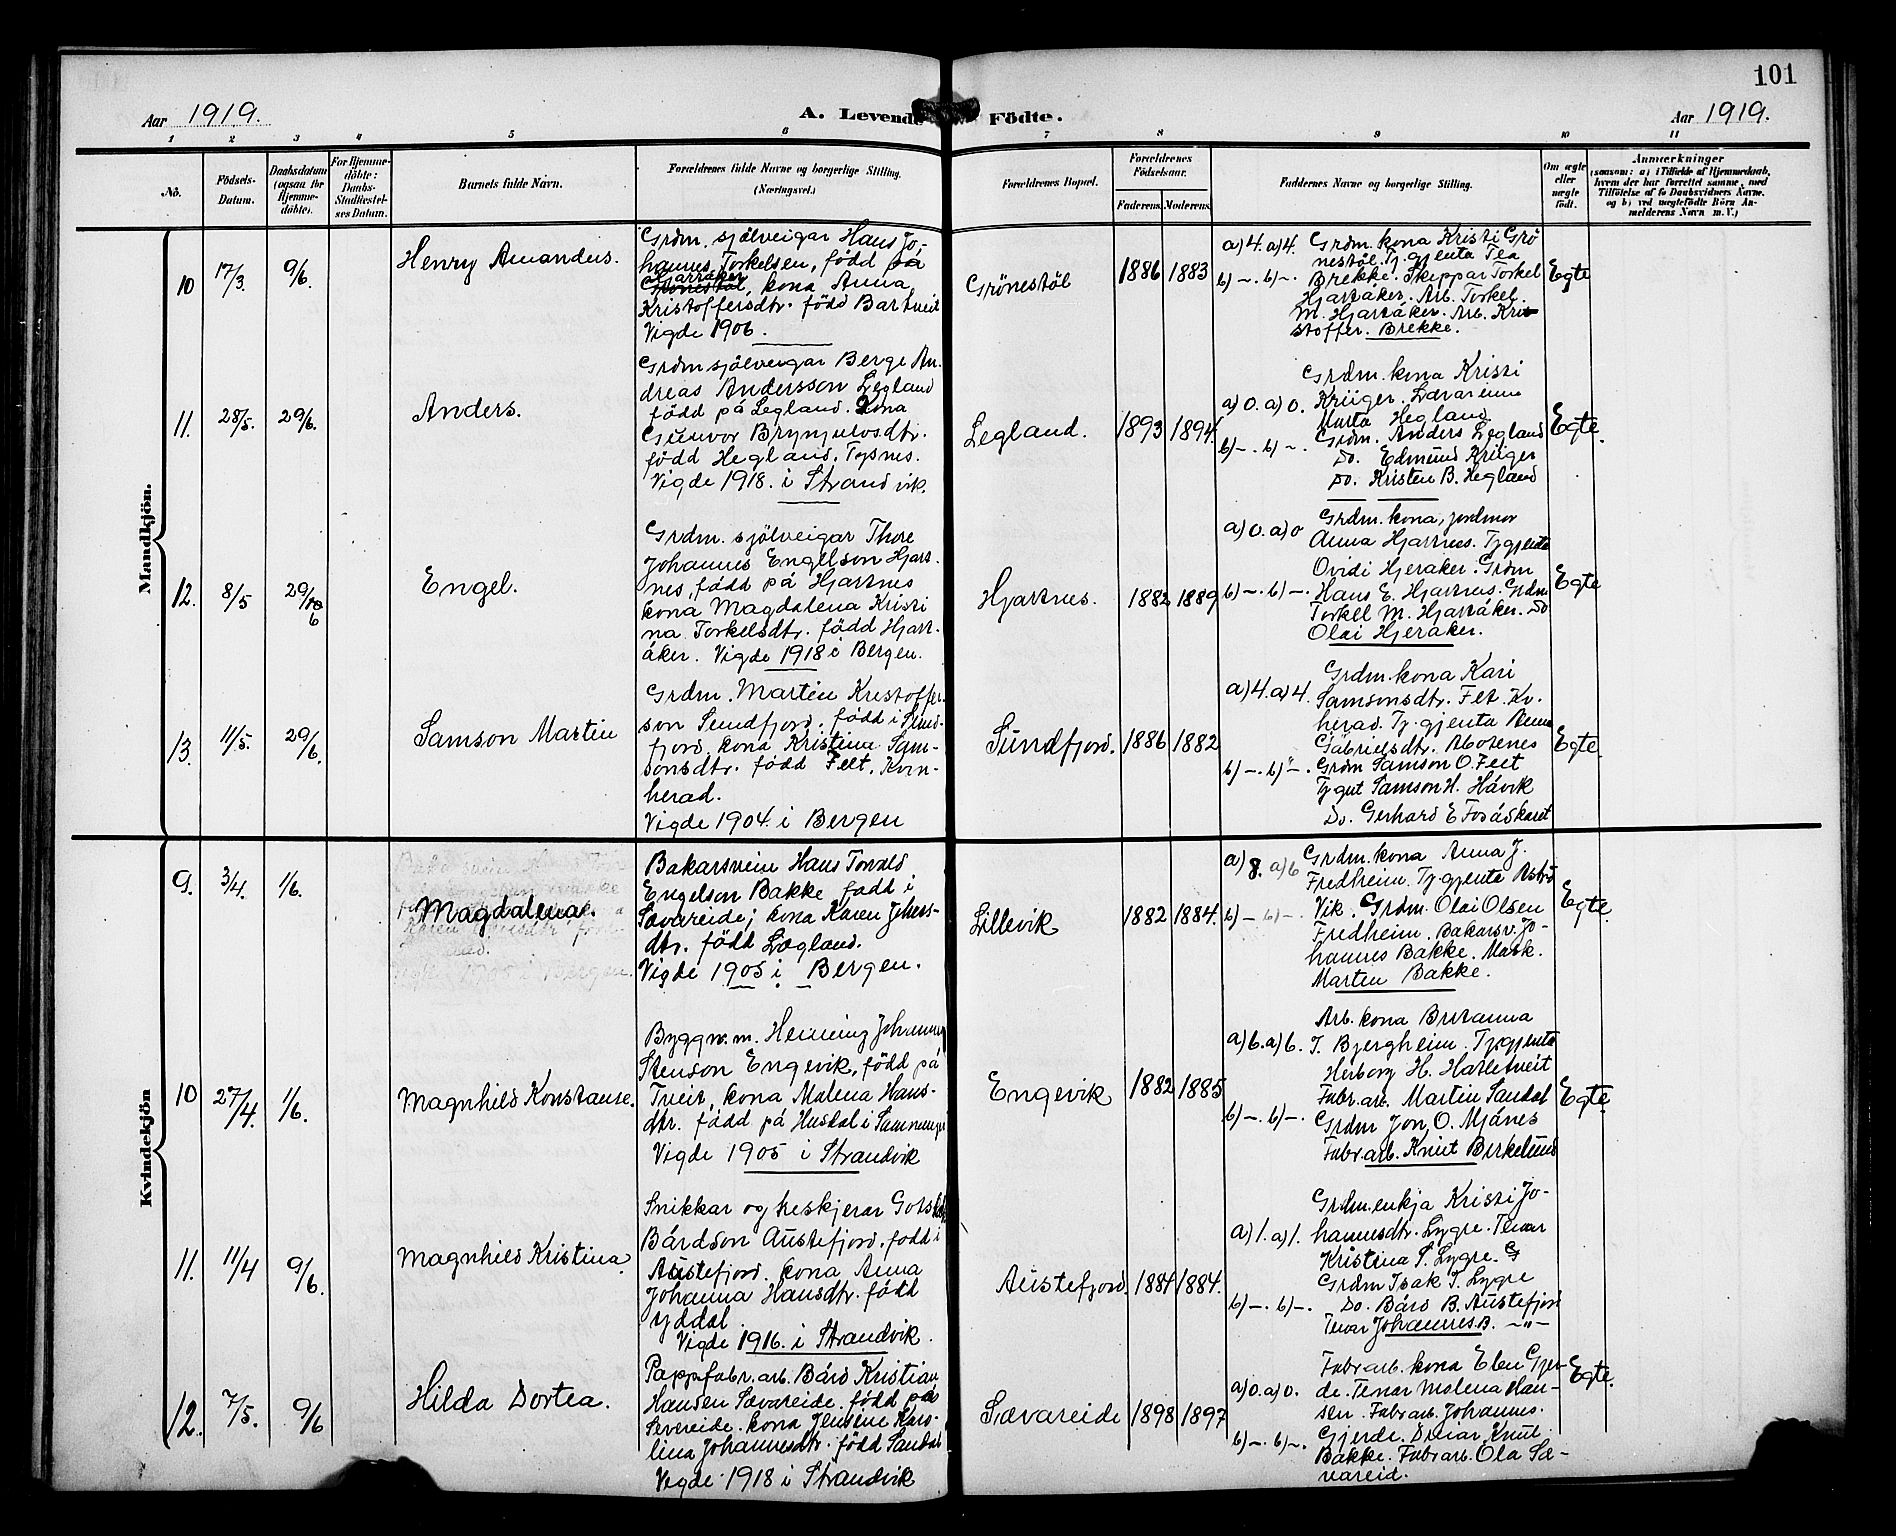 101
Aar 1919.
A. Levende Födte.
Aar 1919.
1 2 3 4 5 6 7 8 9 10 11
No.
Födsels-
Datum.
Daabsdatum
(ogsaa for
Hjemme-
döbte).
For Hjemme-
döbte:
Daabs-
Stadfæstel-
ses Datum.
Barnets fulde Navn.
Forældrenes fulde Navne og borgerlige Stilling.
(Næringsvei.)
Forældrenes Bopæl.
Forældrenes
Födselsaar.
Faderens. Moderens.
Faddernes Navne og borgerlige Stilling.
Om ægte
eller
uægte
födt.
Anmærkninger
(saasom: a) i Tilfælde af Hjemmedaab,
hvem der har forrettet samme, med
Tilföielse af to Daabsvidners Navne,
og b) ved uægtefödte Börn An-
melderens Navn m. V.)
Mandkjön.
10 17/3 9/6.
Henry Amandus.
Grdm. sjölveigar Hans Jo-
hannes Torkelsen, född på
Hjartåker
Grönestöl, kona Anna
Kristoffersdtr. född Bartveit
Vigde 1906.
Grönestöl
1886 1883
a) 4. a) 4.
b) -. b) -.
Grdm. kona Kristi Grö
nestöl. Tj. gjenta Tea
Brekke. Skippar Torkel
Hjartåker. Arb. Torkel.
M. Hjartåker. Arb. Kri
stoffer. Brekke.
Egte
11. 28/5. 29/6.
Anders.
Grdm sjölveigar Berge An-
dreas Andersson Legland
född på Legland. Kona
Gunvor Brynjulvsdtr.
född Hegland. Tysnes.
Vigde 1918. i Strandvik.
Legland.
1893 1894.
a) 0. a) 0.
b) -. b) -.
Grdm. kona Kristi
Krüger. Lærarinne
Marta Hegland
Grdm. Anders Legland
Do. Edmund Krüger
Do. Kristen B. Hegland
Egte.
12. 8/5 29/6
Engel.
Grdm. sjölveigar Thore
Johannes Engelson Hjart-
nes, född på Hjartnes
kona Magdalena Kristi
na Torkelsdtr. född Hjart-
åker. Vigde 1918 i Bergen.
Hjartnes.
1882 1889
a) 0. a) 0
b) -. b) -.
Grdm. kona, jordmor
Anna Hjartnes. Tj gjenta
Ovidi Hjeraker. Grdm
Hans E. Hjartnes. Grdm
Torkel M. Hjartåker. Do
Olai Hjeraker.
Egte
13. 11/5. 29/6.
Samson Martin
Grdm. Martin Kristoffer-
son Sundfjord. född i Sund-
fjord. kona Kristina Sam-
sonsdtr. född Felt. Kvin-
herad.
Vigde 1904. i Bergen
Sundfjord.
1886 1882
a) 4. a) 4.
b) -. b) -.
Grdm. kona Kari
Samsonsdtr. Felt Kv.
herad. Tj. gjenta Anna
Gabrielsdtr. Notenes
Grdm Samson O. Felt
Tj gut Samson H. Håvik
Do. Gerhard E Fosåskaret
Egte.
Kvindekjön
9. 3/4. 1/6.
Magdalena.
Bakarsvein Hans Torvald
Engelson Bakke född i
Sævareide; kona Karen Johans-
dtr. född Lægland.
Vigde 1905 i Bergen.
Lillevik
1882 1884.
a) 8. a) 6
b) - b) -
Grdm. kona Anna J.
Fredheim. Tj gjenta Astrid
Vik. Grdm. Olai Olsen
Fredheim. Bakarsv. Jo-
hannes Bakke. Mask.
Marten Bakke.
Egte.
10 27/4. 1/6.
Magnhild Konstanse.
Byggm. m. Henning Johannes
Stenson Engevik, född på
Tveit, kona Malena Hans-
dtr. född på Husdal i Samnanger
Vigde 1905 i Strandvik
Engevik
1882 1885
a) 6. a) 6.
b) -. b) -.
Arb. kona Britanna
T. Bjergheim. Tj. gjenta
Herborg H. Hatletveit
Fabr. arb. Martin Sandal
Grdm Jon, O. Mjånes
Fabr. arb. Knut Birkelund
Egte.
11. 11/4 9/6.
Magnhild Kristina.
Snikkar og treskjerar Gotskalk
Bårdson Austefjord. född i
Austefjord. kona Anna
Johanna Hansdtr. född
Yddal.
Vigde 1916. i Strandvik.
Austefjord.
1884 1884.
a) 1. a) 1.
b) -. b) -.
Grdm. enkja Kristi Jo-
hannesdtr. Lygre. Tenar
Kristina S. Lygre. G
Grdm Isak T. Lygre
Do. Bård B. Austefjord
Tenar Johannes B. -"-
12. 7/5. 9/6
Hilda Dortea.
Pappfabr. arb. Bård Kristian
Hansen Sævareide. född på
Severeide. kona Jensine Karo-
lina Johannesdtr. född Sandal
Vigde 1918 i Strandvik
Sævareide
1898 1897
a) 0. a) 0.
b) -. b) -.
Fabr arb. kona Eben Gjer-
de. Tenar Malena Han-
sen. Fabr arb. Johannes.
Gjerde. Drivar Knut
Bakke. Fabr arb. Ola Sæ-
vareid.
Egte.